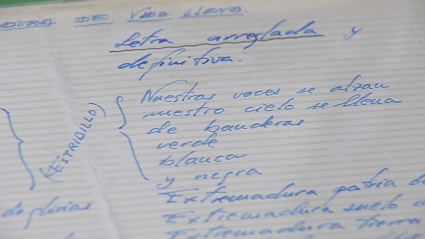 DE VIDA LLENA.
Letra arreglada y
definitiva.
(ESTRIBILLO)
Nuestras voces se alzan
nuestro cielo se llena
de banderas
verde
blanca
y negra
Extremadura patria de
de glorias
Extremadura suelo d
Extremadura tierra